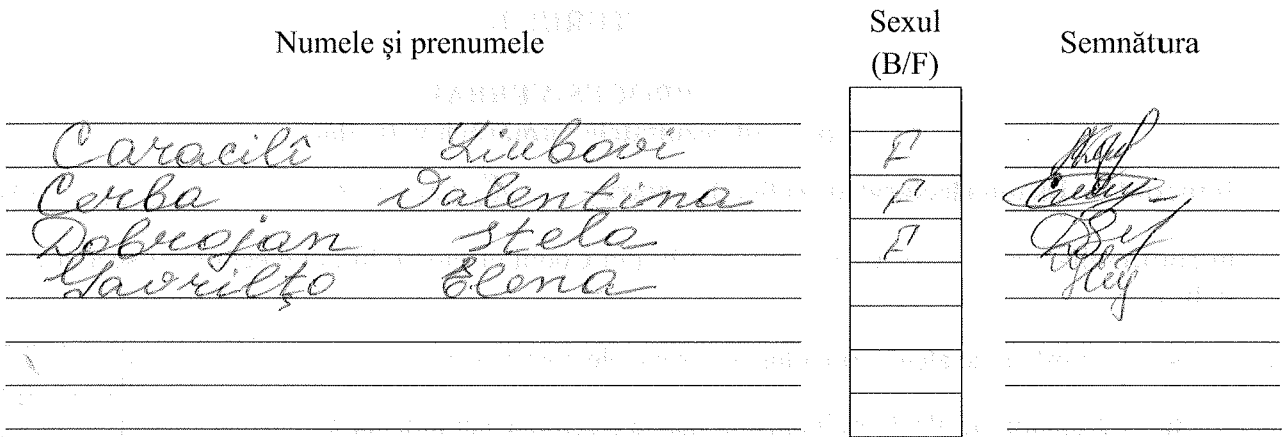 Numele și prenumele Sexul (B/F) Semnătura
Caracilî Liubovi F
Cerba Valentina F
Dobrojan Stela F
Gavrilţo Elena